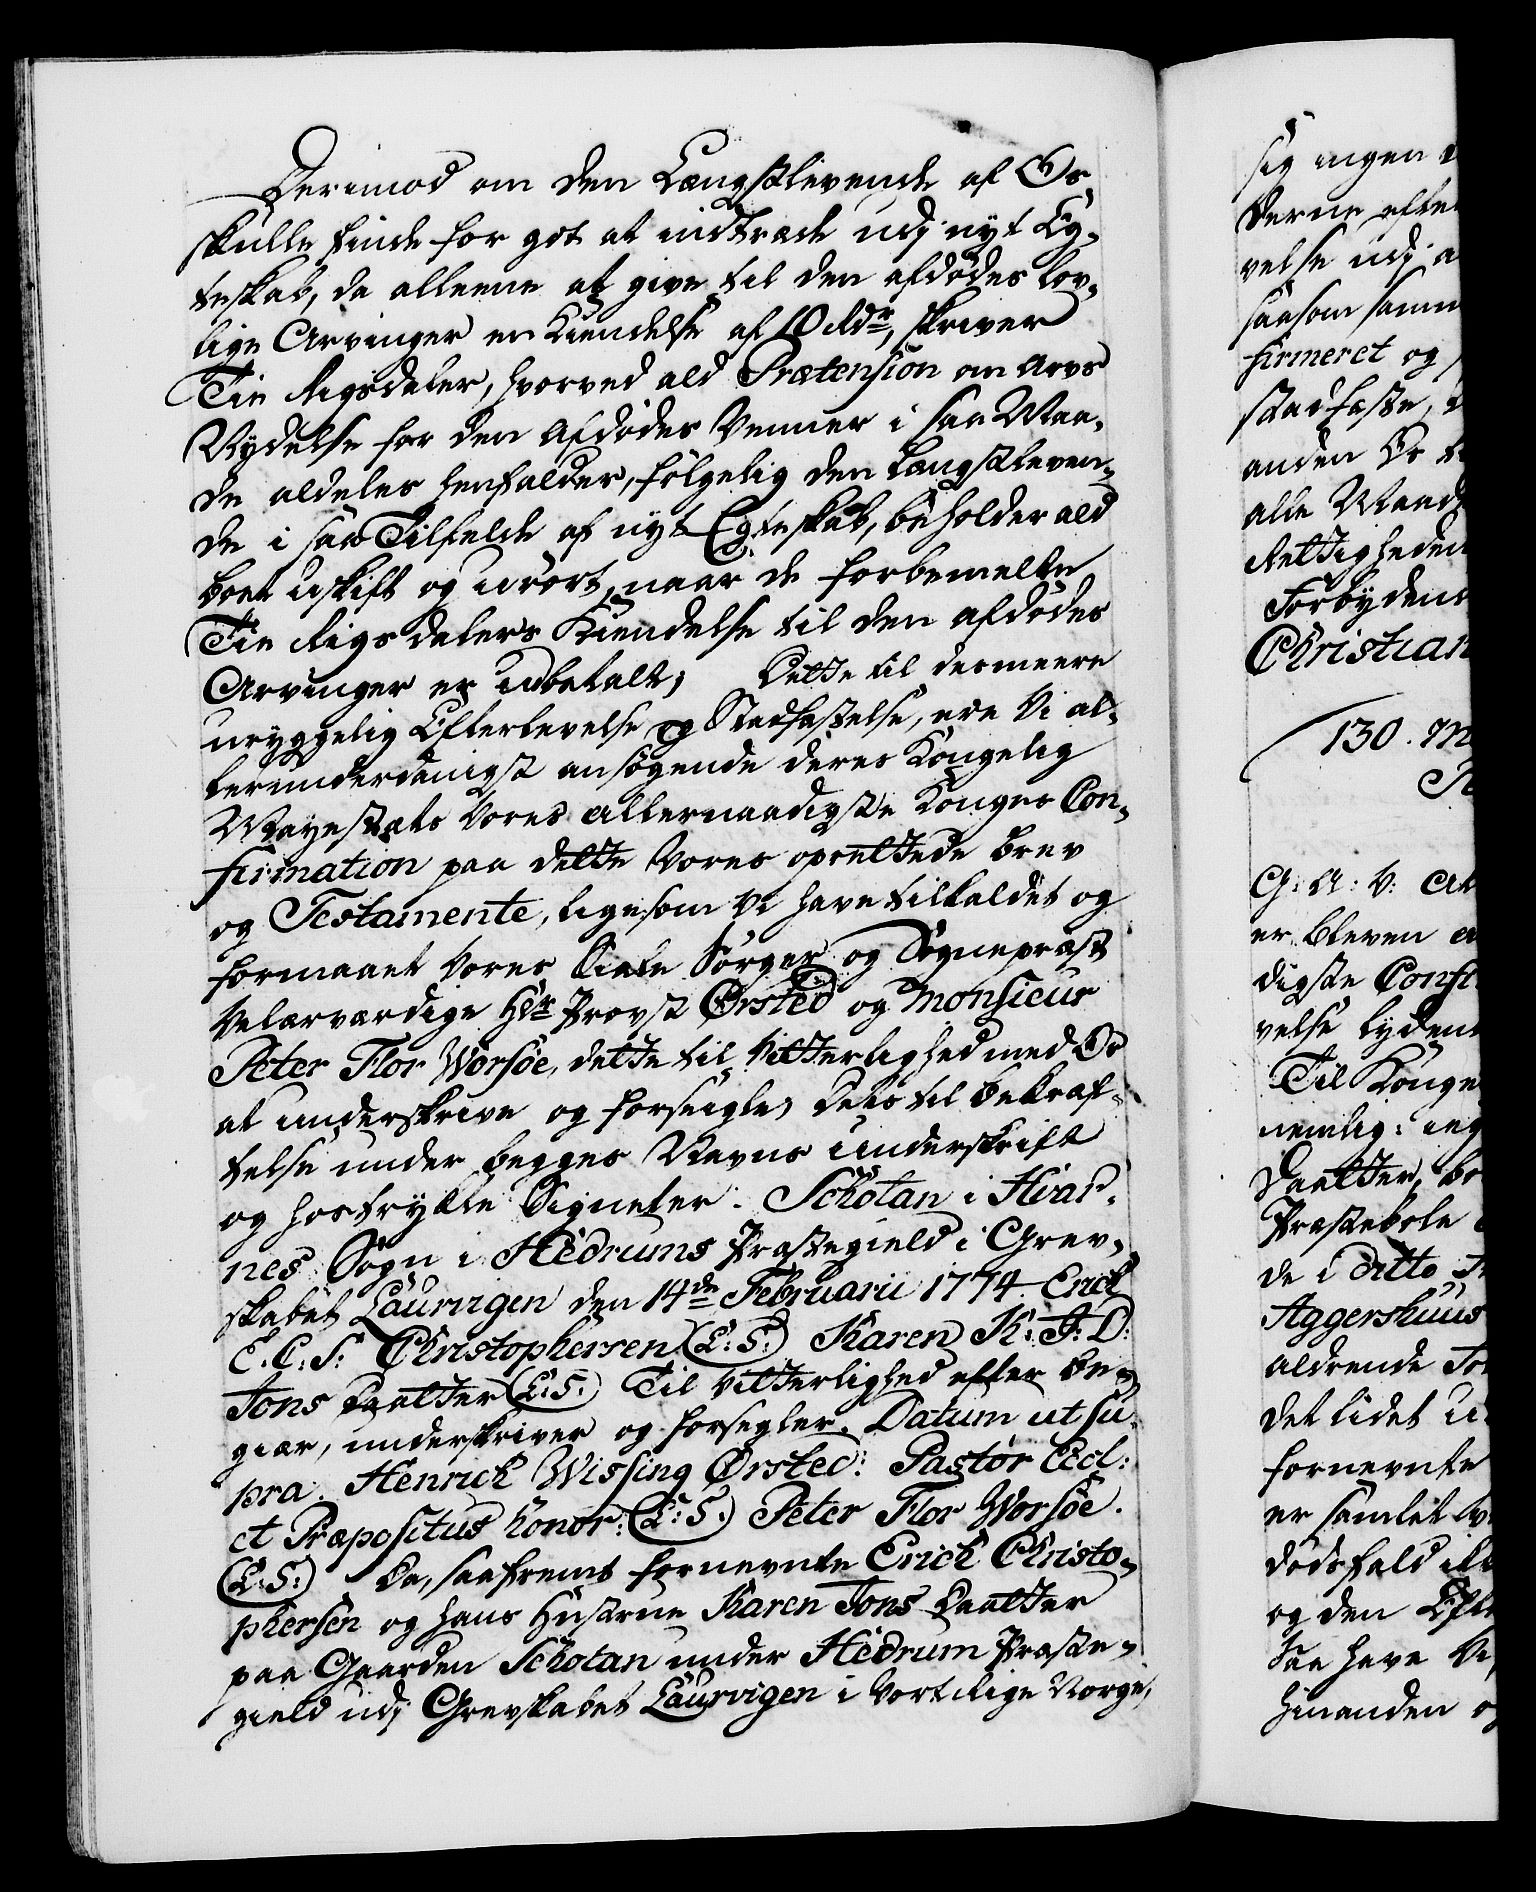 Derimod om den Længstlevende af Os
skulle finde for got at indtræde udj nyt Eg-
teskab, da alleene at give til den afdödes lov-
lige Arvinger en Kiendelse af 10 Rdr, skriver
Tie Rigsdaler, hvorved ald Prætension om Arvs
Nydelse for den Afdödes Venner i saa Maa-
de aldeles henfalder, fölgelig den længstleven-
de i saa Tilfelde af nyt Egteskab, beholder ald
boet uskift og urört, naar de forbemelte
Tie Rigsdalers Kiendelse til den afdödes
Arvinger er udbetalt; Dette til desmeere
uryggelig Efterlevelse og Stadfæstelse, ere Vi al-
lerunderdanigst ansögende Deres Kongelig
Mayestæts Vores allernaadigste Konges Con-
firmation paa dette Vores oprettede brev
og Testamente, ligesom Vi have tilkaldet og
formaaet Vores Siæle Sörger og Sognepræst
Velærværdige Hr Provst Örsted og Monsieur
Peter Flor Worsöe, dette til Vitterlighed med Os
at underskrive og forseigle; Dets til bekræf-
telse under begges Navns underskrift
og hostrykte Signeter. Schotan i Hvar-
nes Sogn i Hedrums Præstegield i Grev-
skabet Laurvigen den 14de Februarii 1774. Erich
E. C. S: Christophersen (L: S:) Karen K: J: D:
Jons Daatter (L: S:) Til Vitterlighed efter be-
giær, underskriver og forsegler. Datum ut su-
pra. Henrich Wissing Örsted: Pastor Eccl:
et Præpositus honor: (L: S:) Peter Flor Worsöe.
(L: S:) Da, saafremt fornevnte Erich Christo-
phersen og hans Hustrue Karen Jons Daatter
paa Gaarden Schotan under Hedrum Præste-
gield udj Grevskabet Laurvigen i Vort Rige Norge,
sig ingen
derne efter
velse udj a
saasom samm
firmeret og
stadfæste,
anden Os
alle Maade
Rettigheden
Forbydend
Christian
130. M
G: A: V: At
er bleven a
digste Confi
velse lydend
Til Konge
nemlig: ieg
Daatter, bo
Præstebole
de i ditto
Aggershuus
aldrende
det lidet
fornevnte
er samlet
dödsfald
og den Eft
saa have Vi
hinanden og